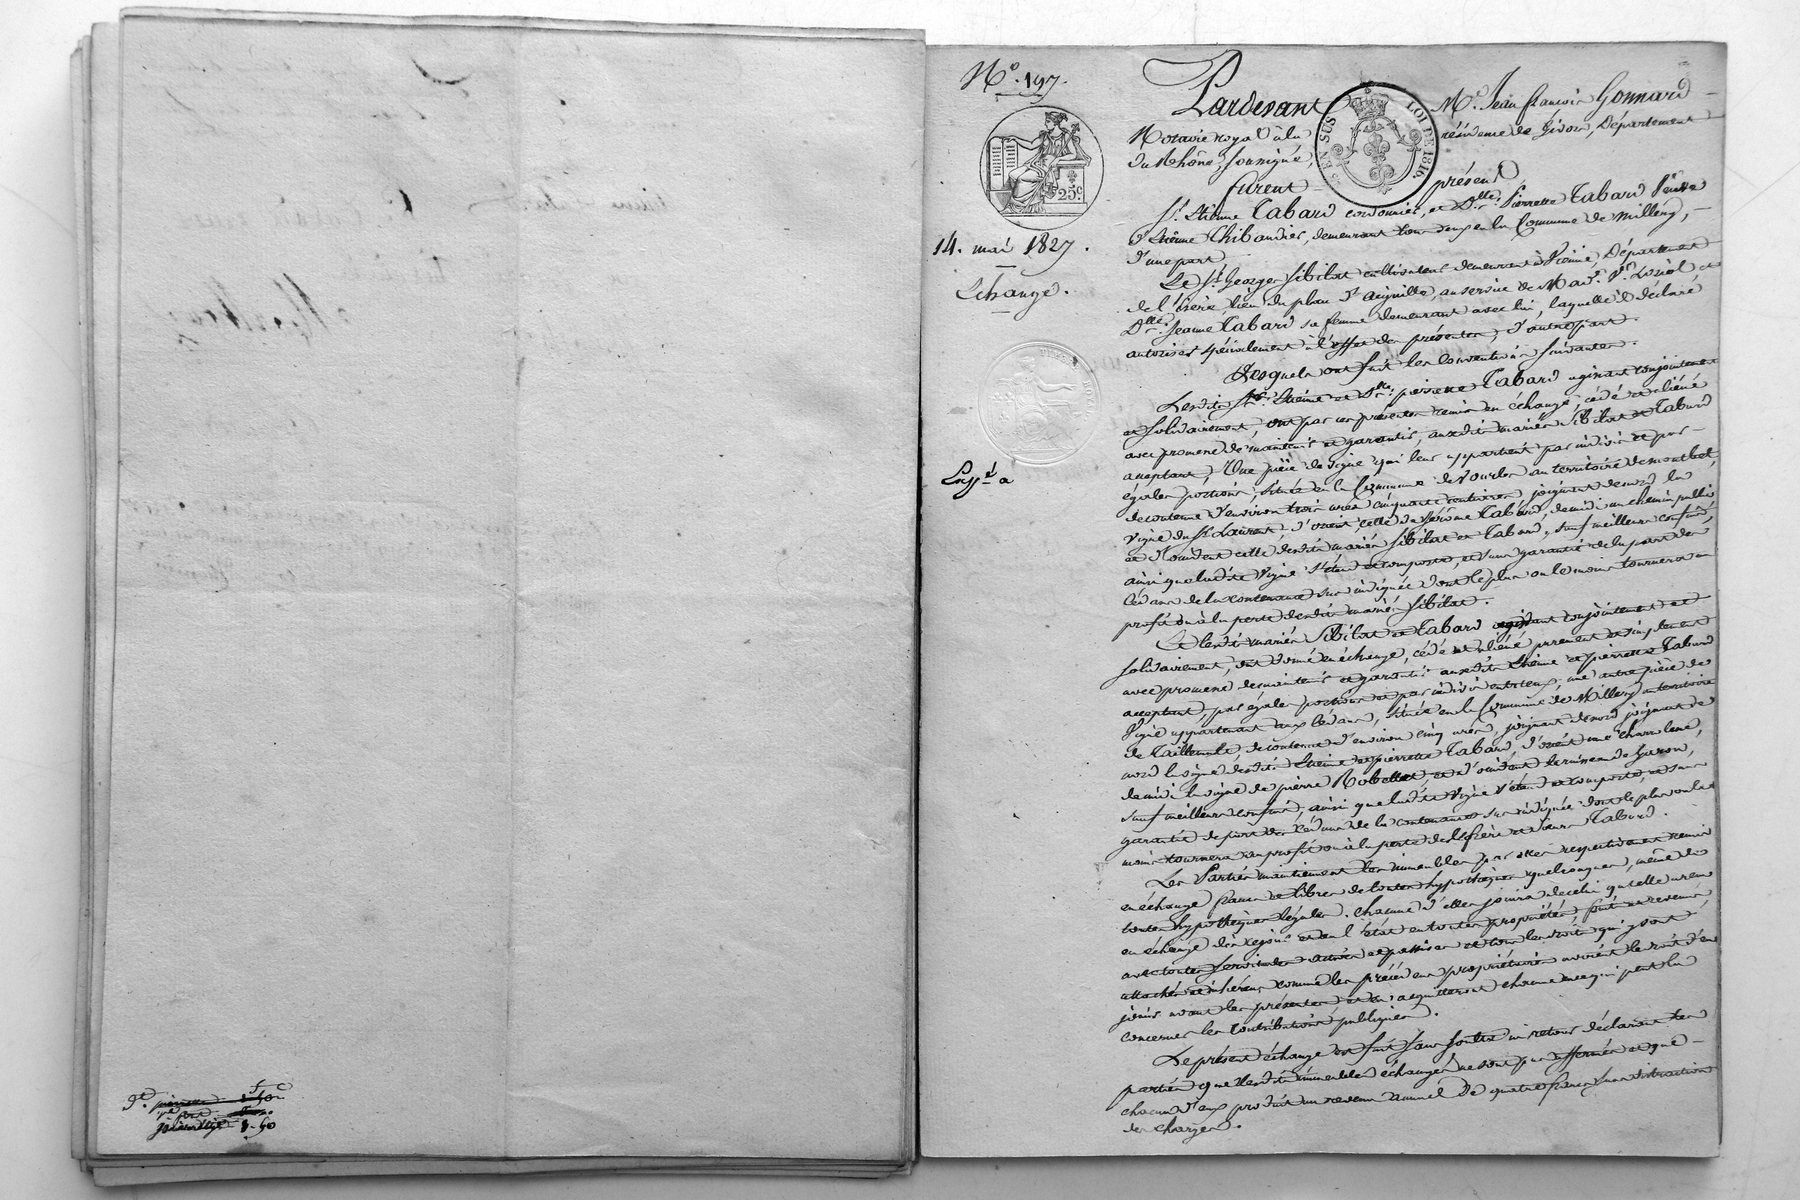 N.o 197.
25 c.
14. mai 1827.
Echange.
Exp.d a
EN SUS
LOI DE 1816.
Pardevant M.e Jean françois Gonnard
Notaire royal à la résidence de Givors, Département
du Rhône, soussigné,
furent présents
S.r Etienne Tabard cordonnier, et D.lle Pierrette Tabard Veuve
d'Etienne Thibaudier, demeurant tous deux en la Commune de Millery,
d'une part
Le S.r George Sibilat cultivateur demeurant à Vienne, Département
de l'Isère, lieu du plan d'aiguille, au service de Mad.e V.e et
D.lle Jeanne Tabard sa femme demeurant avec lui, laquelle il déclare
autoriser spécialement à l'effet des présentes, d'autre part.
Lesquels ont fait les conventions suivantes.
Lesdits S.r Etienne et D.lle pierrette Tabard agissant conjointement
et solidairement, ont par ces présentes remis en échange, cédé et aliéné
avec promesse de maintenir et garantir, auxdits mariés Sibilat et Tabard
acceptant, Une pièce de vigne qui leur appartient par indivis et par
égales portions, située en la Commune de Vourles au territoire de montbel,
de contenue d'environ trois ares cinquante centiares, joignant de nord la
vigne du S.r Laurent, d'orient celle de Jérôme Tabard, de midi un chemin public
et d'occident celle desdits mariés Sibilat et Tabard, sauf meilleurs confins,
ainsi que ladite vigne s'étend et comporte, et sans garantie de la part des
cédans de la contenance sus indiquée dont le plus ou le moins tournera au
profit ou à la perte desdits mariés Sibilat.
Et lesdits mariés Sibilat et Tabard agissant conjointement et
solidairement, ont donné en échange, cédé et aliéné purement et simplement
avec promesse de maintenir et garantir auxdits Etienne et pierrette Tabard
acceptant, par égales portions et par indivis entr'eux, une autre pièce de
vigne appartenant aux cédans, située en la Commune de Millery au territoire
de Taillemule, de contenue d'environ cinq ares, joignant de nord joignant de
nord la vigne desdits Etienne et pierrette Tabard, d'orient une charrière,
de midi la vigne de pierre Robellet, et d'occident le ruisseau de Garon,
sauf meilleurs confins, ainsi que ladite vigne s'étend et comporte, et sans
garantie de part des cédans de la contenance sus indiquée dont le plus ou le
moins tournera au profit ou à la perte desdits frère et sœur Tabard.
Les Parties maintiennent les immeubles par elles respectivement remis
en échange francs et libres de toutes hypothèques quelconques, même de
toutes hypothèques légales. Chacune d'elles jouira de celui qu'elle a reçu
en échange dès ce jour et en l'état en toutes propriétés, fruits et revenus,
avec toutes servitudes actives et passives et tous les droits qui y sont
attachés et inhérens, comme les précédens propriétaires avaient le droit d'en
jouir avant les présentes, et en acquitteront chacune en ce qui peut la
concerner les contributions publiques.
Le présent échange est fait sans soulte ni retour déclarant les
parties que lesdits immeubles échangés ne sont pas affermés et que
chacun d'eux produit un revenu annuel de quatre francs, sans distraction
des charges.